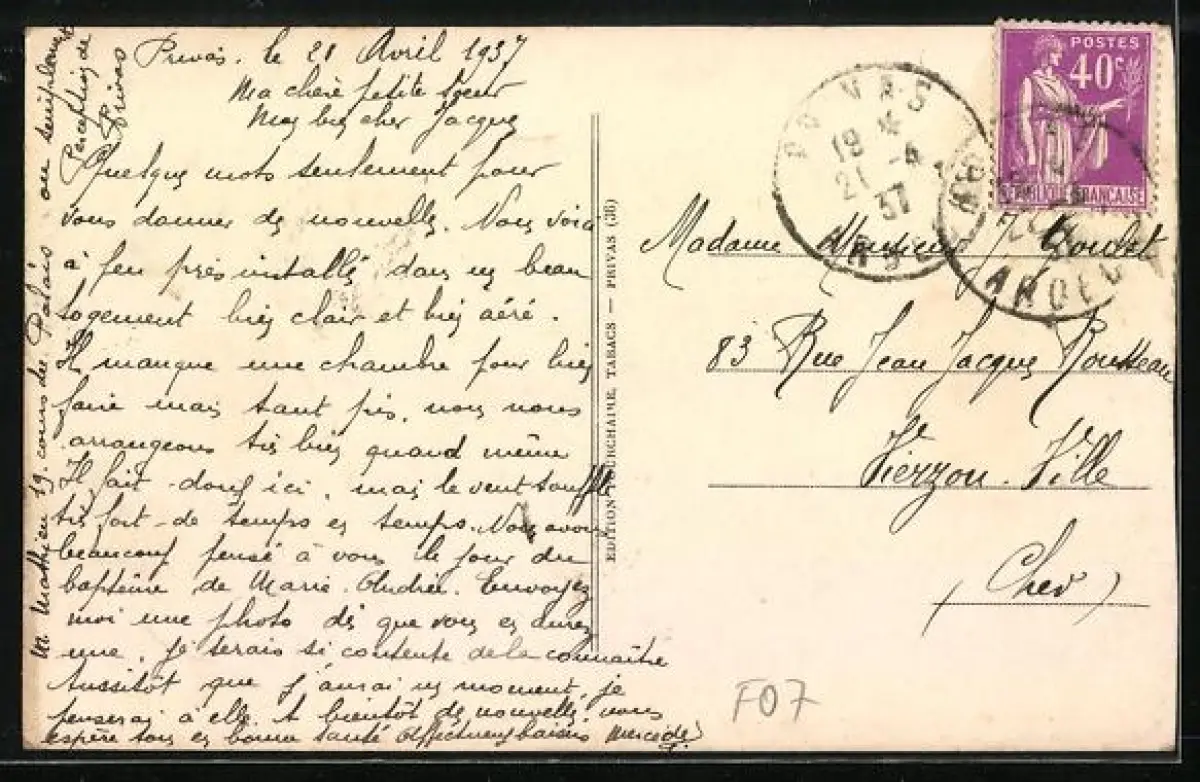 Privas, le 21 Avril 1937
Ma chère petite soeur
Mon bien cher Jacques
Quelques mots seulement pour
vous donner des nouvelles. Nous voici
à peu près installés dans un beau
logement bien clair et bien aéré.
Il manque une chambre pour bien
faire mais tant pis, nous nous
arrangeons très bien quand même
Il fait doux ici, mais le vent souffle
très fort de temps en temps. Nous avons
beaucoup pensé à vous le jour du
baptême de Marie-Andrée. Envoyez
moi une photo dès que vous en aurez
une, je serais si contente de la connaître
Aussitôt que j'aurai un moment, je
penserai à elle. A bientôt de nouvelles, vous
espère tous en bonne santé Affectueux baisers Mercédès
M. Mathieu 19. cours du Palais ou simplement
Perception de
Privas
EDITION TABACS — PRIVAS (36)
POSTES
40c
REPUBLIQUE FRANÇAISE
PRIVAS
19 *
21 -4
37
ARDECHE
Madame Monsieur J.
83 Rue Jean Jacques Rousseau
Vierzon-Ville
(Cher)
F07